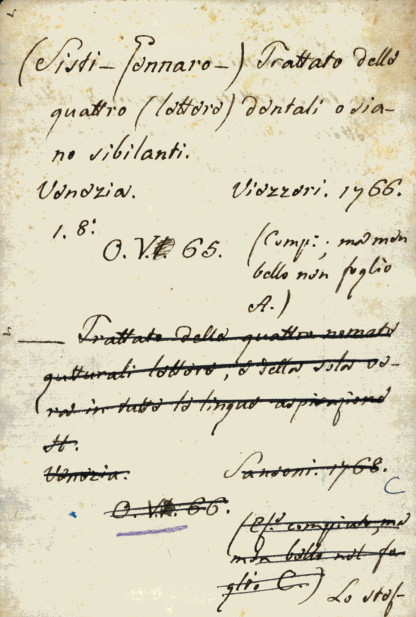 (Sisti - Gennaro -) Trattato delle
quattro (lettere) dentali o sia-
no sibilanti.
Venezia. Viezzeri. 1766.
1. 8.
O. V. 65. (Comp.; ma non
bello nel foglio
A.)
— Trattato delle quattro nomate
gutturali lettere, e della sola ve-
ra in tutte le lingue aspirazione
H.
Venezia. Sansoni. 1768.
O. V. 66.
(Es. compiuto, ma
non bello nel fo-
glio C.) Lo stes-